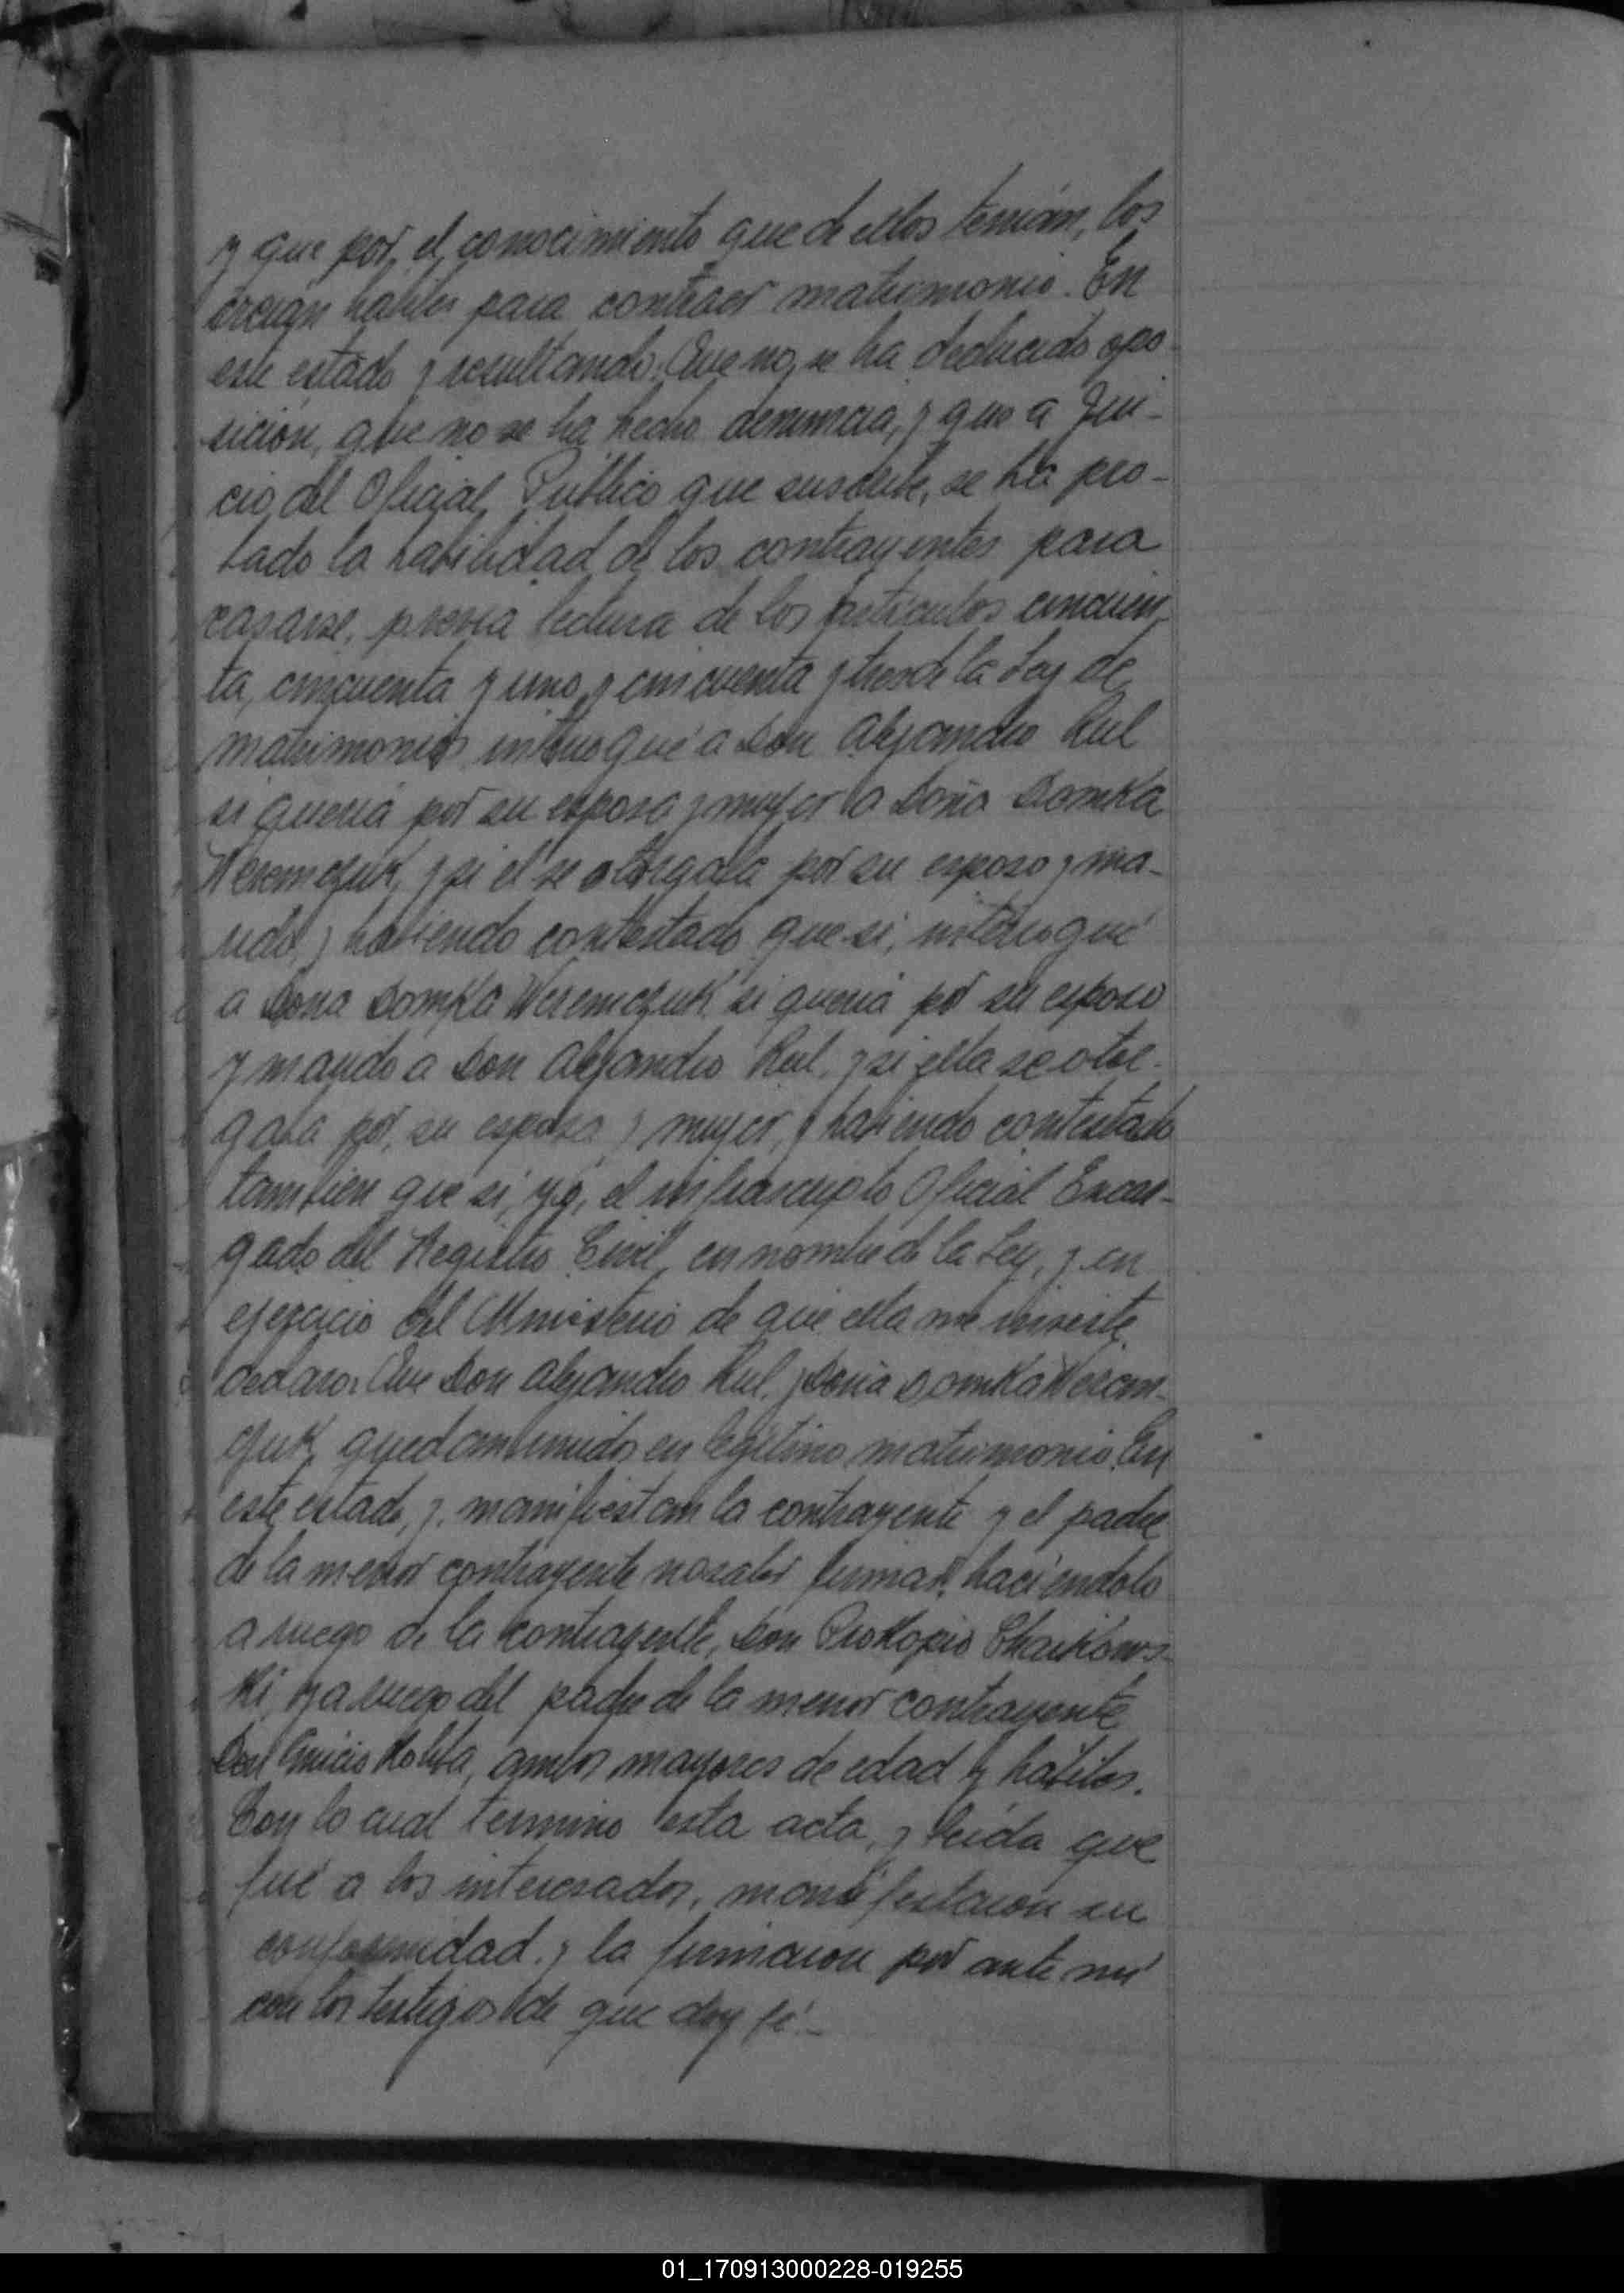 y que por el conocimiento que de ellos tenian, los
creian habiles para contraer matrimonio. En
este estado y resultando: Que no se ha deducido opo-
sición, que no se ha hecho denuncia, y que a jui-
cio del Oficial Publico que suscribe, se ha pro-
bado la habilidad de los contrayentes para
casarse, previa lectura de los articulos cincuen-
ta, cincuenta y uno y cincuenta y tres de la Ley de
matrimonio, interrogué a Don Alejandro Rul
si queria por su esposa y mujer a Doña Domka
Weremczuk, y si el se otorgaba por su esposo y ma-
rido, y habiendo contestado que si, interrogué
a Doña Domka Weremczuk si queria por su esposo
y marido a Don Alejandro Rul, y si ella se otor-
gaba por su esposa y mujer, y habiendo contestado
tambien que si, yo, el infrascripto Oficial Encar-
gado del Registro Civil, en nombre de la Ley, y en
ejercicio del Ministerio de que ella me inviste,
declaro: Que Don Alejandro Rul, y Doña Domka Werem-
czuk, quedan unidos en legitimo matrimonio. En
este estado, y manifiestan la contrayente y el padre
de la menor contrayente no saber firmar, haciendolo
a ruego de la contrayente, Don Prokopio Charkows-
ki, y a ruego del padre de la menor contrayente
Don Kolita, ambos mayores de edad y habiles.
Con lo cual termino esta acta, y leida que
fué a los interesados, manifestaron su
conformidad y la firmaron por ante mi
con los testigos de que doy fé.-
01_170913000228-019255